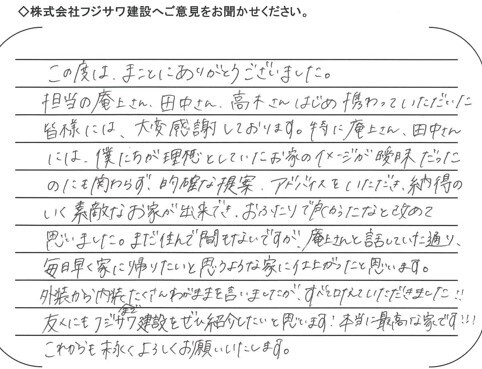 ◇株式会社フジサワ建設へご意見をお聞かせください。
この度は、まことにありがとうございました。
担当の庵上さん、田中さん、高木さんはじめ携わっていただいた
皆様には、大変感謝しております。特に庵上さん、田中さん
には、僕たちが理想としていたお家のイメージが曖昧だった
のにも関わらず、的確な提案、アドバイスをいただき、納得の
いく素敵なお家が出来でき、おふたりで良かったなと改めて
思いました。まだ住んで間もないですが、庵上さんと話していた通り、
毎日早く家に帰りたいと思うような家に仕上がったと思います。
外装から内装、たくさんわがままを言いましたが、すべて叶えていただきました!!
友人にもフジサワ建設をぜひ紹介したいと思います!本当に最高な家です!!!
これからも末永くよろしくお願いいたします。